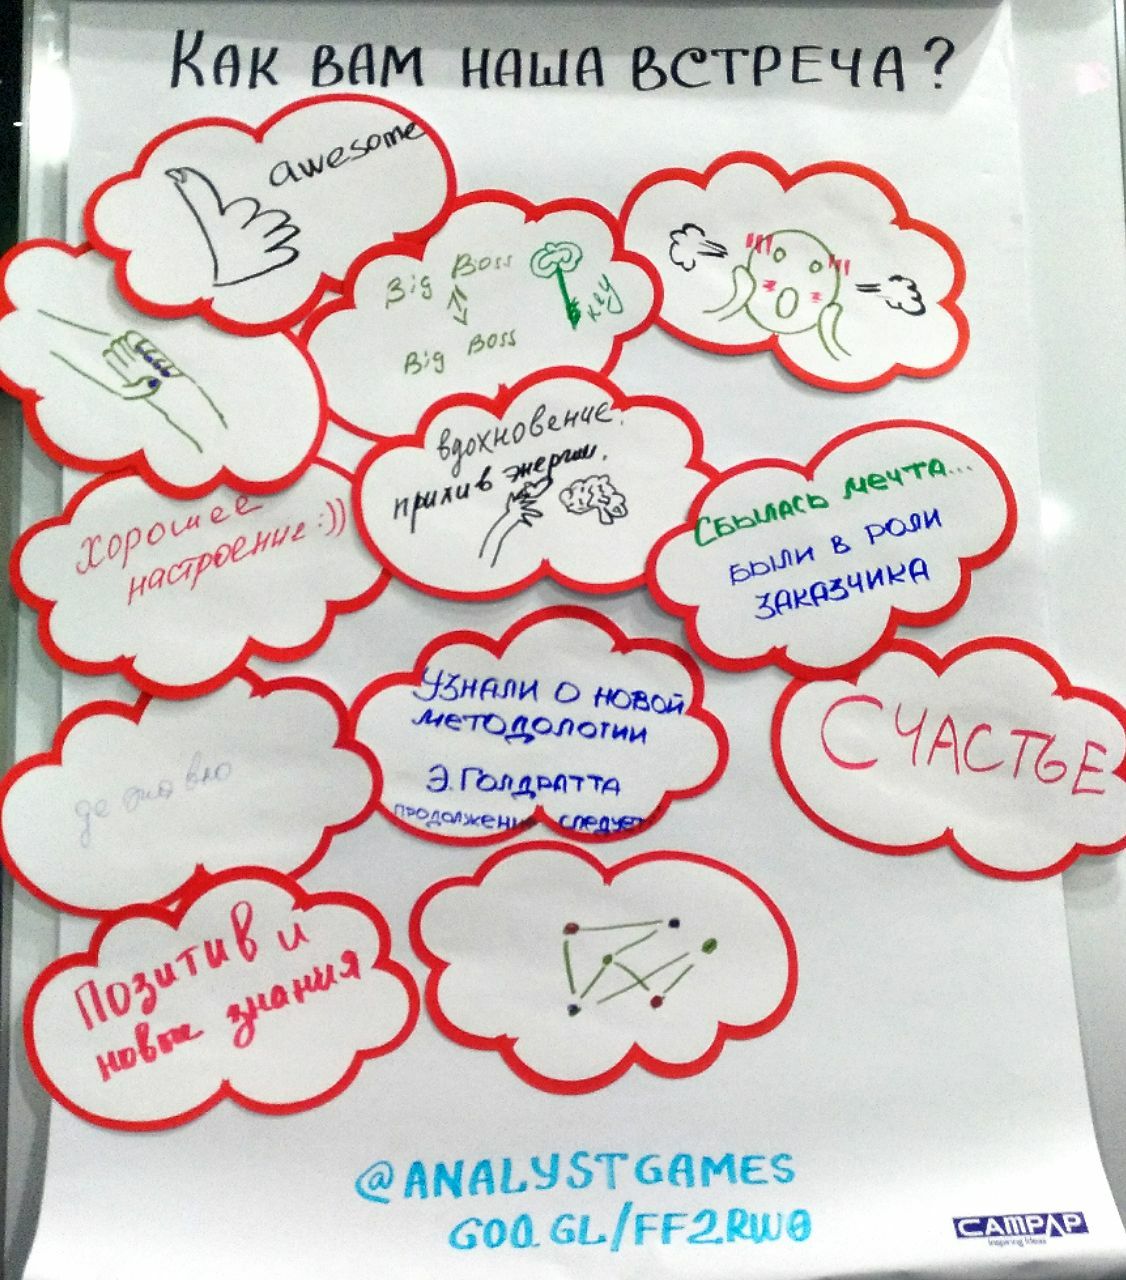 КАК ВАМ НАША ВСТРЕЧА?
awesome
Big Boss
key
Big Boss
вдохновение.
прилив энергии.
хорошее
настроение:))
СБЫЛАСЬ МЕЧТА...
БЫЛИ В РОЛИ
ЗАКАЗЧИКА
УЗНАЛИ О НОВОЙ
МЕТОДОЛОГИИ
Э.ГОЛДРАТТА
ПРОДОЛЖЕНИЕ СЛЕДУЕТ
СЧАСТЬЕ
Позитив и
новые знания
@ANALYSTGAMES
GOO.GL/FF2RW0
CAMPAP
Inspiring Ideas